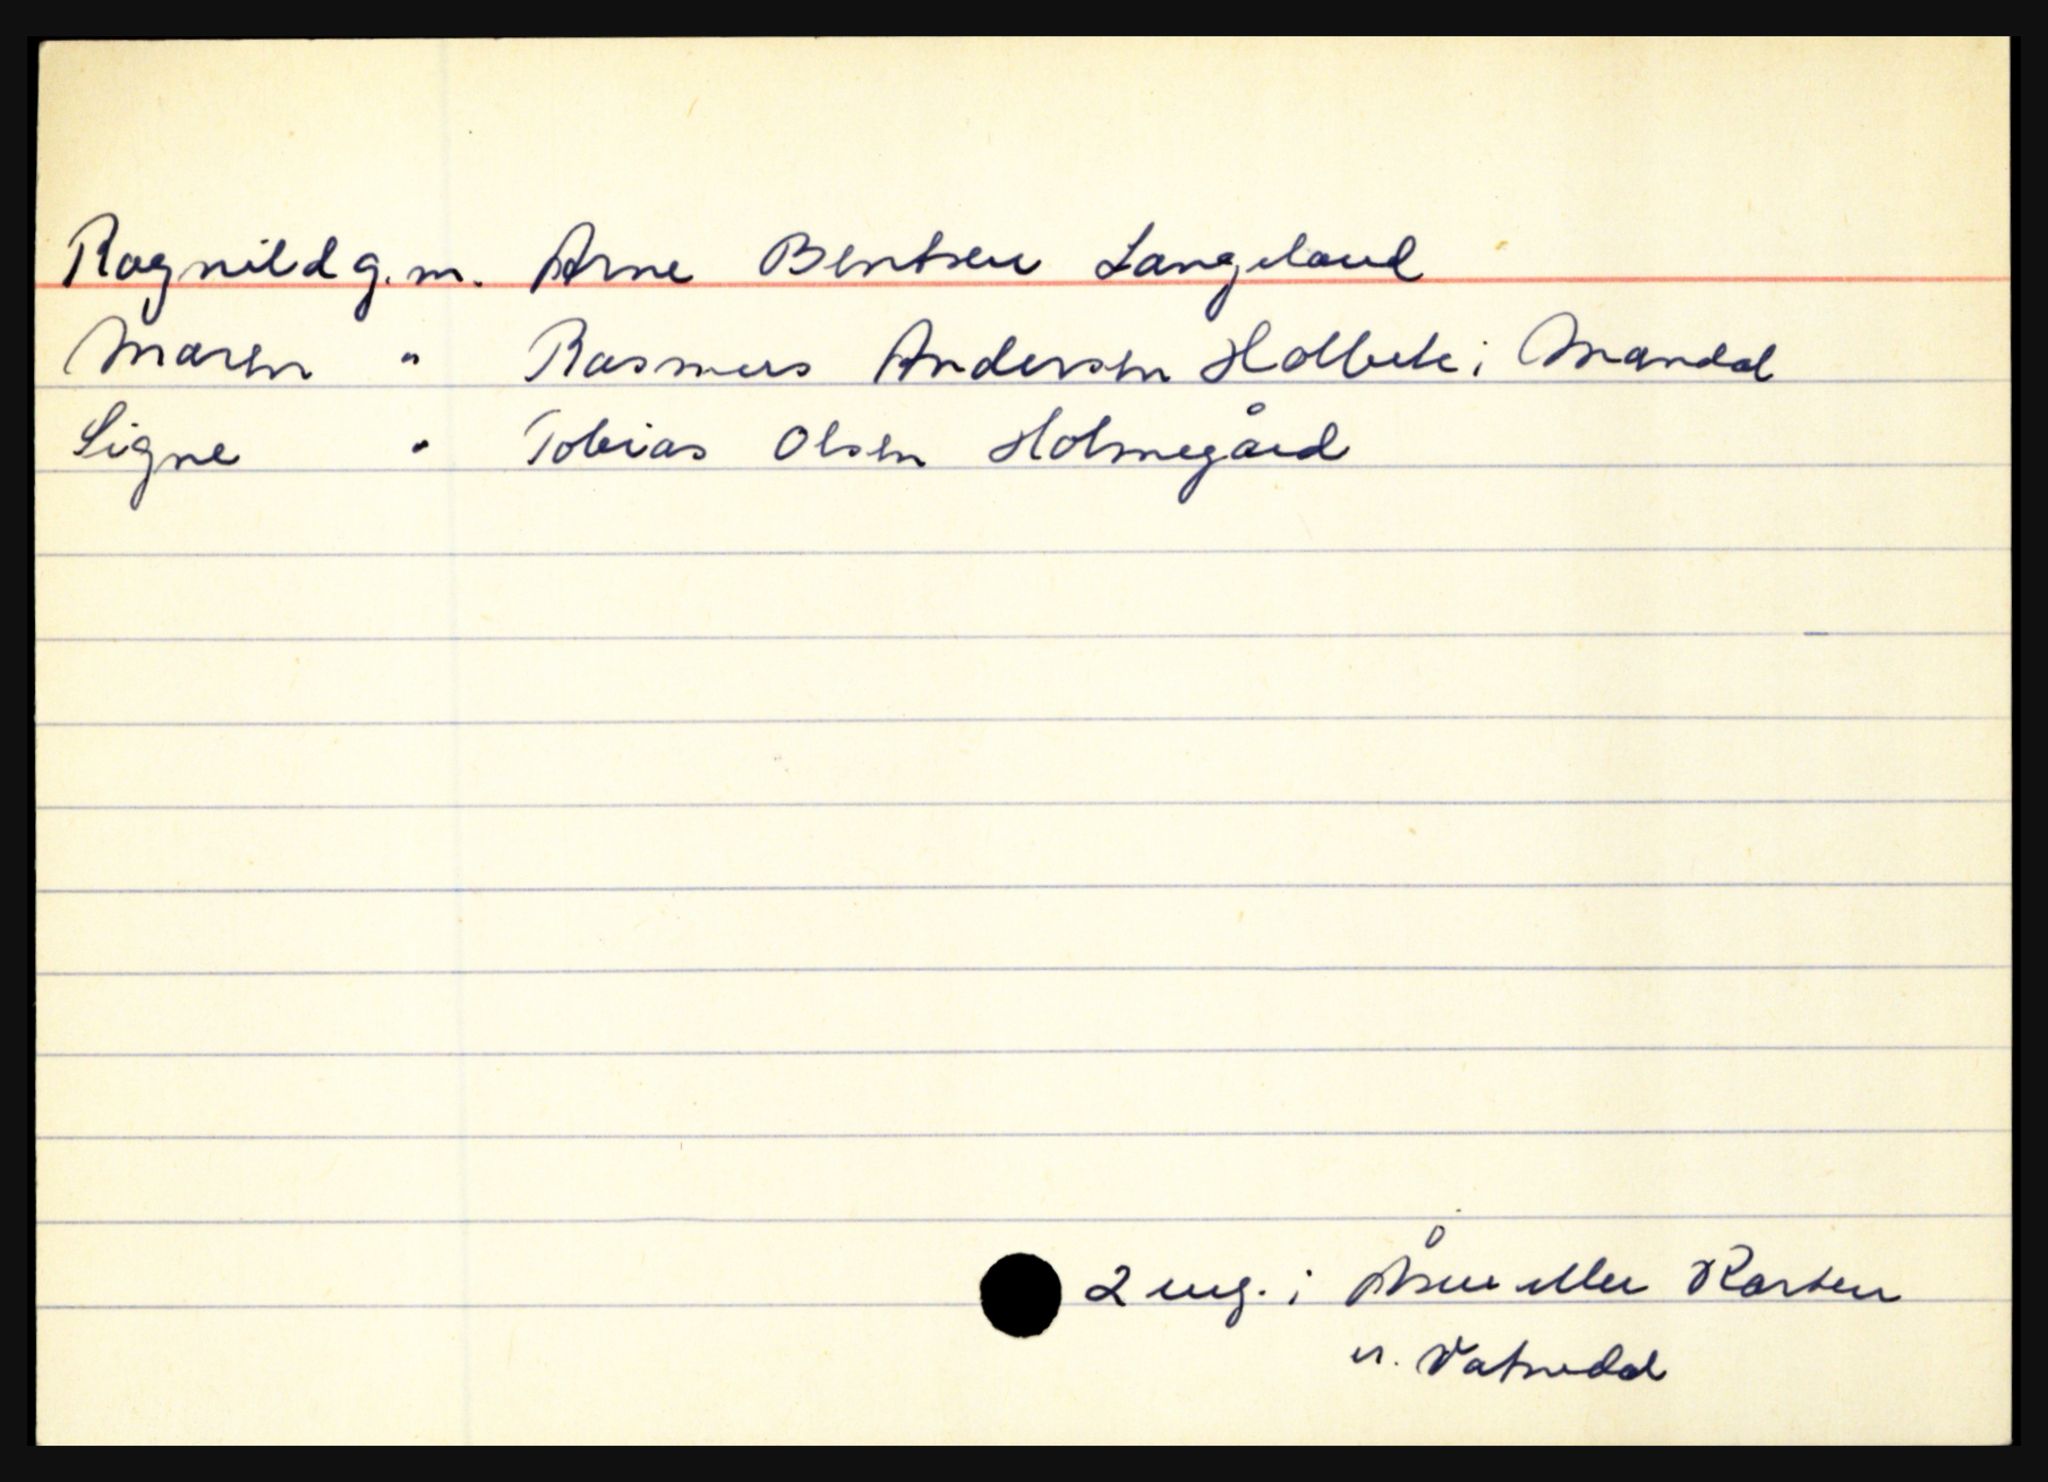 Ragnild g.m. Arne Bentsen Langeland
Maren " Rasmus Andersen Holbek i Mandal
Signe " Tobias Olsen Holmegård
2 ug. i Åsen eller Karten
n. Vatnedal